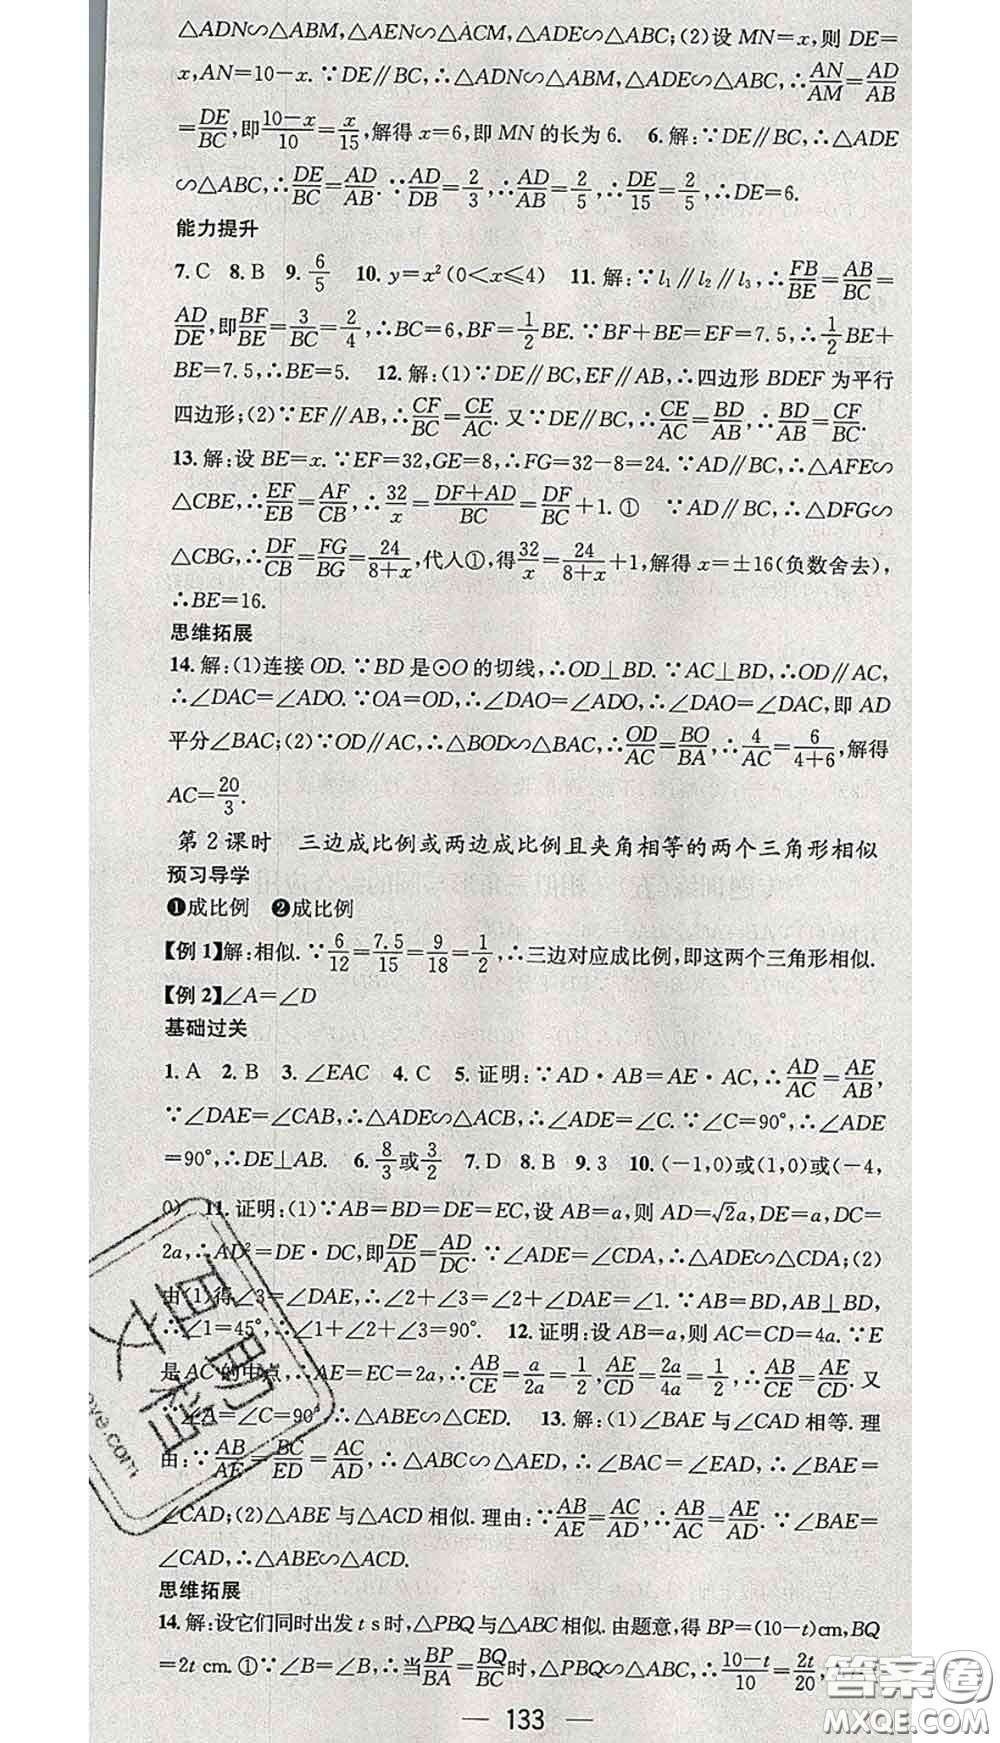 △ADN∽△ABM,△AEN∽△ACM,△ADE∽△ABC;(2)设 MN=x,则 DE=
x,AN=10-x.∵DE∥BC,∴△ADN∽△ABM,△ADE∽△ABC,∴AN/AM=AD/AB
=DE/BC,即(10-x)/10=x/15,解得 x=6,即 MN 的长为 6. 6.解:∵DE∥BC,∴△ADE
∽△ABC,∴DE/BC=AD/AB.∵AD/DB=2/3,∴AD/AB=2/5,∴DE/15=2/5,∴DE=6.
能力提升
7.C 8.B 9.6/5 10.y=x²(0<x≤4) 11.解:∵l₁∥l₂∥l₃,∴FB/BE=AB/BC=
AD/DE,即BF/BE=3/BC=2/4,∴BC=6,BF=1/2BE.∵BF+BE=EF=7.5,∴1/2BE+
BE=7.5,∴BE=5. 12.解:(1)∵DE∥BC,EF∥AB,∴四边形 BDEF 为平行
四边形;(2)∵EF∥AB,∴CF/BC=CE/AC.又∵DE∥BC,∴CE/AC=BD/AB,∴BD/AB=CF/BC.
13.解:设 BE=x.∵EF=32,GE=8,∴FG=32-8=24.∵AD∥BC,∴△AFE∽
△CBE,∴EF/EB=AF/CB,∴32/x=(DF+AD)/BC=DF/BC+1.① ∵AD∥BC,∴△DFG∽
△CBG,∴DF/CB=FG/BG=24/(8+x),代人①,得32/x=24/(8+x)+1,解得 x=±16(负数舍去),
∴BE=16.
思维拓展
14.解:(1)连接 OD.∵BD 是⊙O 的切线,∴OD⊥BD.∵AC⊥BD,∴OD∥AC,
∴∠DAC=∠ADO.∵OA=OD,∴∠DAO=∠ADO,∴∠DAO=∠DAC,即 AD
平分∠BAC;(2)∵OD∥AC,∴△BOD∽△BAC,∴OD/AC=BO/BA,∴4/AC=6/(4+6),解得
AC=20/3.
第 2 课时 三边成比例或两边成比例且夹角相等的两个三角形相似
预习导学
❶成比例 ❷成比例
【例 1】解:相似.∵6/12=7.5/15=9/18=1/2,∴三边对应成比例,即这两个三角形相似.
【例 2】∠A=∠D
基础过关
1.A 2.B 3.∠EAC 4.C 5.证明:∵AD·AB=AE·AC,∴AD/AC=AE/AB,
∵∠DAE=∠CAB,∴△ADE∽△ACB,∴∠ADE=∠C.∵∠C=90°,∴∠ADE
=90°,∴DE⊥AB. 6.8/3或3/2 7.D 8.B 9.3 10.(-1,0)或(1,0)或(-4,
0) 11.证明:(1)∵AB=BD=DE=EC,设 AB=a,则 AD=√2a,DE=a,DC=
2a,∴AD²=DE·DC,即DE/AD=AD/DC.∵∠ADE=∠CDA,∴△ADE∽△CDA;(2)
由(1)得∠3=∠DAE,∴∠2+∠3=∠2+∠DAE=∠1.∵AB=BD,AB⊥BD,
∴∠1=45°,∴∠1+∠2+∠3=90°. 12.证明:设 AB=a,则 AC=CD=4a.∵E
是 AC 的中点,∴AE=EC=2a,∴AB/CE=a/2a=1/2,AE/CD=2a/4a=1/2,∴AB/CE=AE/CD.又
∵∠A=∠C=90°,∴△ABE∽△CED. 13.解:(1)∠BAE 与∠CAD 相等.理
由:∵AB/AE=BC/ED=AC/AD,∴△ABC∽△AED,∴∠BAC=∠EAD,∴∠BAE=
∠CAD;(2)△ABE 与△ACD 相似.理由:∵AB/AE=AC/AD,∴AB/AC=AE/AD.∵∠BAE=
∠CAD,∴△ABE∽△ACD.
思维拓展
14.解:设它们同时出发 t s 时,△PBQ 与△ABC 相似.由题意,得 BP=(10-t)cm,BQ
=2t cm.①∵∠B=∠B,∴当BP/BA=BQ/BC时,△PBQ∽△ABC,∴(10-t)/10=2t/20,
— 133 —
答案圈
MXQE.COM